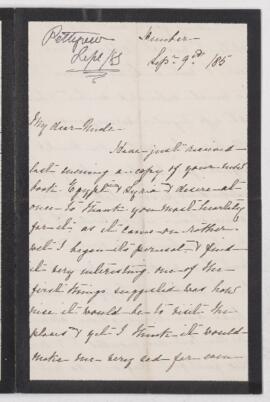 Pettigrew
Sept /85
Sept. 9th /85
My dear Uncle.
Have just received
last evening a copy of your
book Egypt & Syria & desire at
once to thank you most heartily
for it as it came on
I began its perusal & find
it very interesting. one of the
first things suggested was how
nice it would be to visit the
places & yet I think it would
make me very sad for even